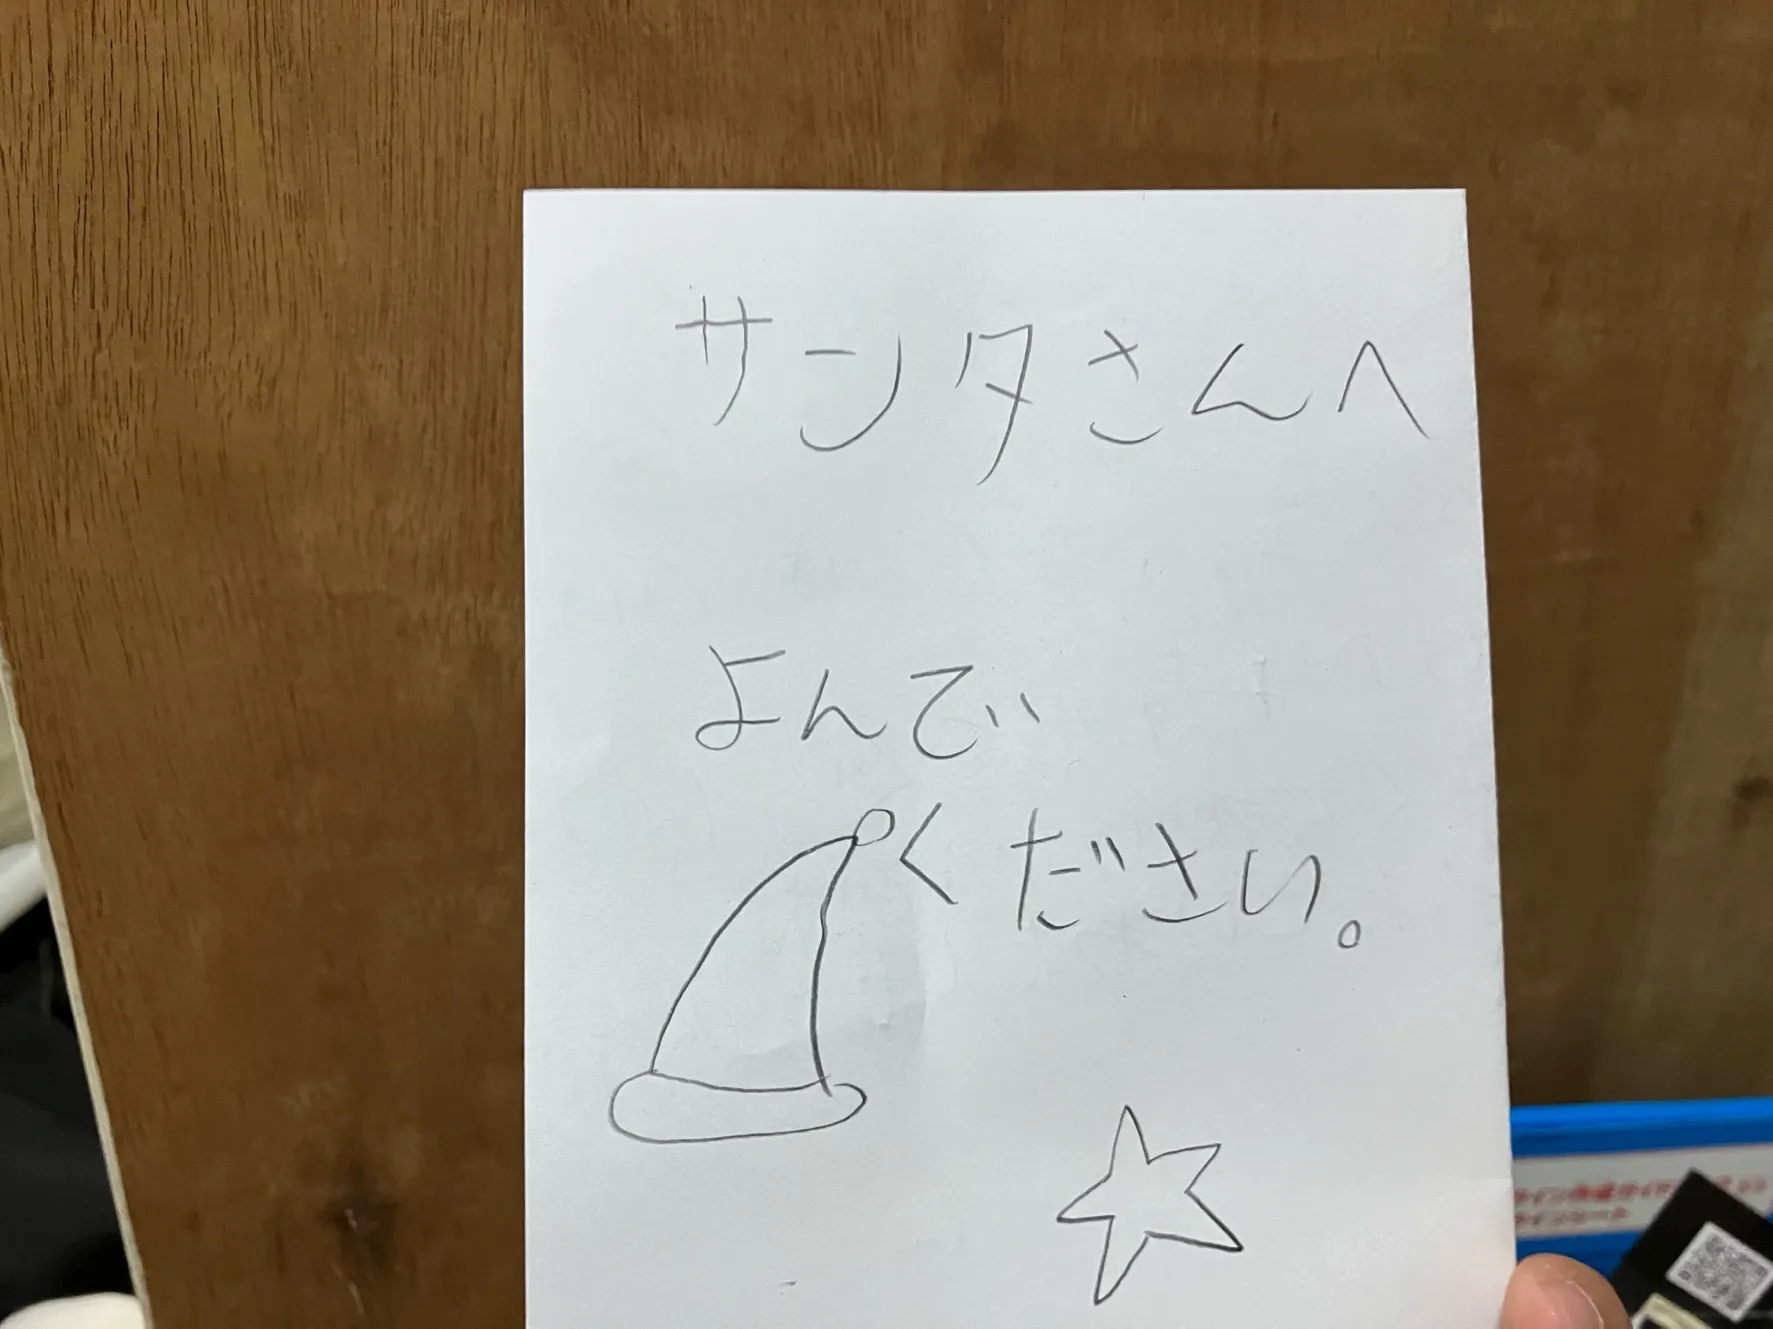 サンタさんへ
よんで
ください。